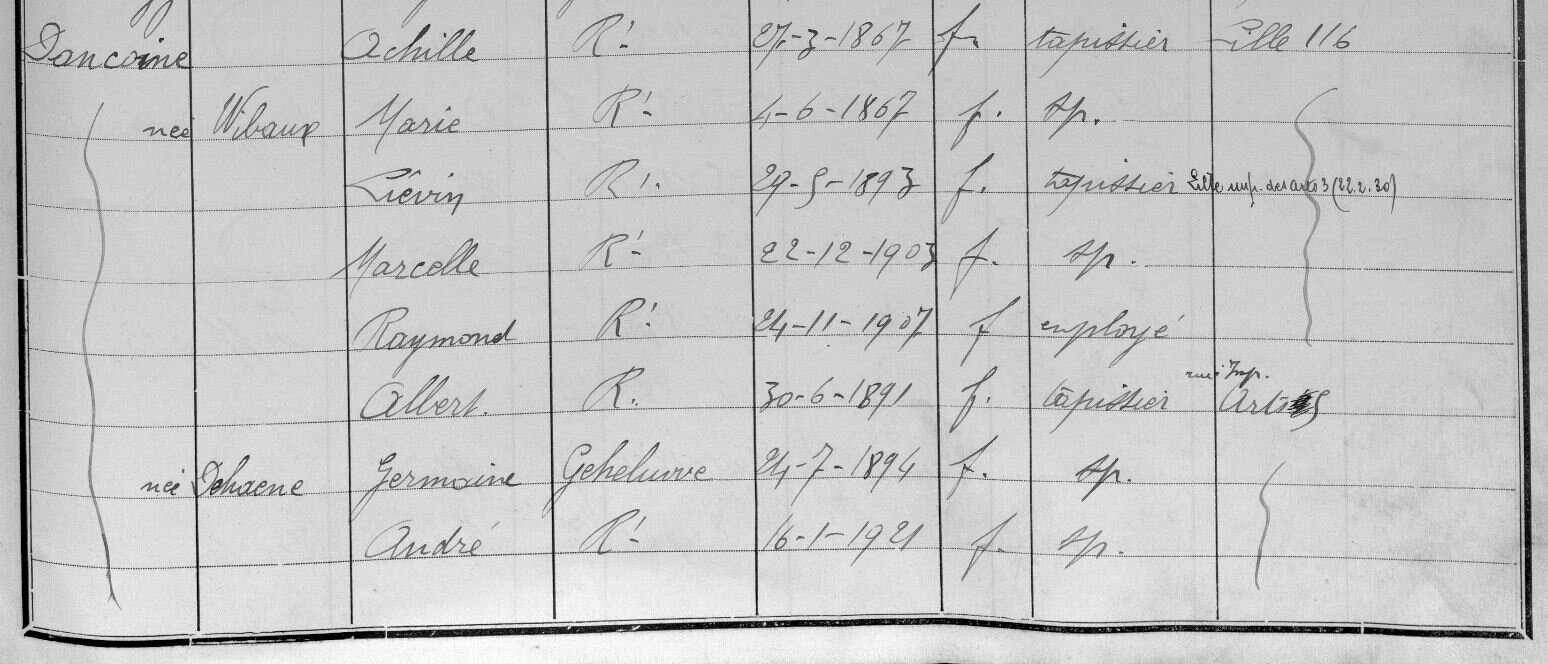 Dancoine Achille R.- 27-3-1867 f. tapissier Lille 116
née Wibaux Marie R.- 4-6-1867 f. sp.
Liévin R. 29-5-1893 f. tapissier Lille imp. des arts 3 (22.2.30)
Marcelle R.- 22-12-1903 f. sp.
Raymond R. 24-11-1907 f employé
rue Imp.
Albert. R. 30-6-1891 f. tapissier Arts 5
née Dehaene Germaine Geheluwe 24-7-1894 f. sp.
André R.- 16-1-1921 f. sp.